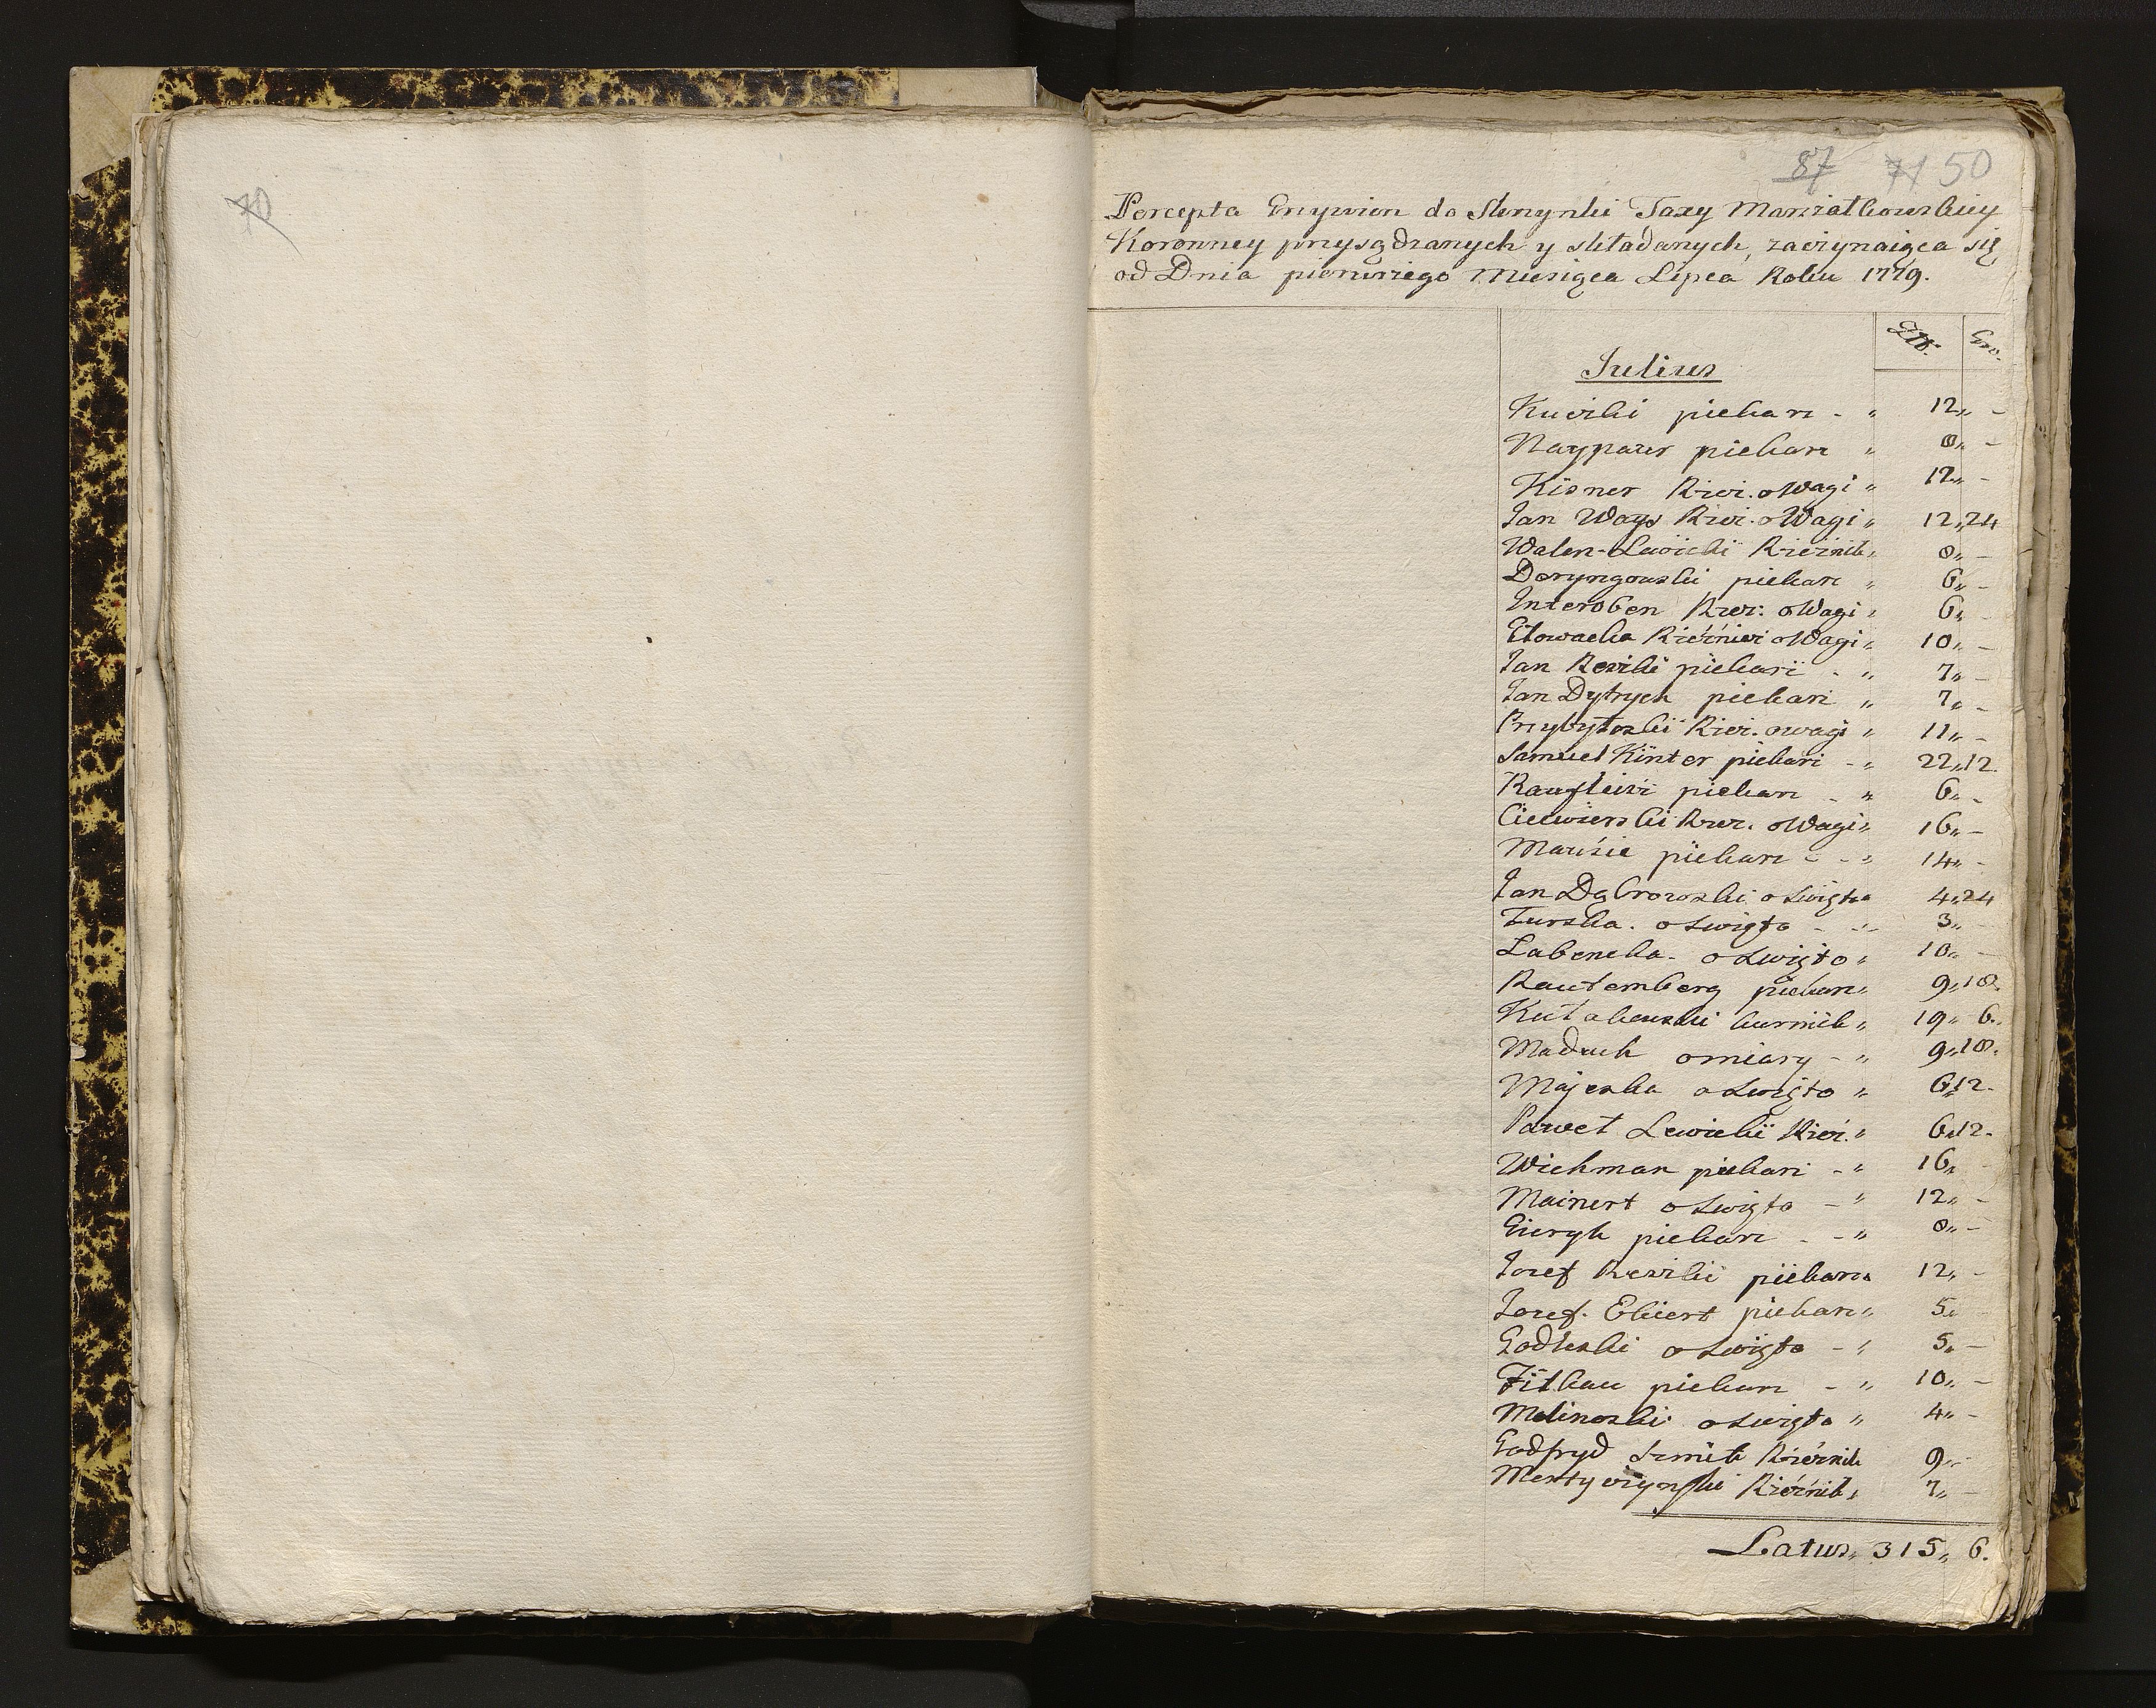 70
87 71 50
Percepta Grzywien do Skrzynki Taxy Marszałkowskiey
Koronney przysądzanych y składanych, zaczynaiąca się
od Dnia pierwszego Miesiąca Lipca Roku 1779.
Złł: Gro.
Julius
Kucski piekarz - „ 12„ -
Naypaur piekarz „ 8„ -
Kisner Rzez. o Wagi „ 12„ -
Jan Ways Rzez. o Wagi „ 12„24
Walen- Lewicki Rzeźnik „ 8„ -
Doryngowski piekarz „ 6„ -
Interoben Rzez: o Wagi „ 6„ -
Głowacka Rzeźnicz o Wagi „ 10„ -
Jan Reszki piekarz - „ 7„ -
Jan Dytrych piekarz „ 7„ -
Przybytoski Rzez. o wagi „ 11„ -
Samuel Kinter piekarz - „ 22„12.
Raufleisz piekarz - „ 6„ -
Ciecwierski Rzez. o Wagi „ 16„ -
Mausie piekarz - - „ 14„ -
Jan Dąbrowski o Święto 4„24
Turska. o Święto - - 3„ -
Labencka - o Święto „ 10„ -
Rautemberg piekarz „ 9„18.
Kutakowski kurnik „ 19„ 6.
Maduch o miary - „ 9„18.
Majeska o Święto „ 6„12.
Paweł Lewicki Rzez. „ 6„12.
Wichman piekarz - „ 16„ -
Mainert o Święto - „ 12„ -
Gieryk piekarz - - „ 8„ -
Jozef Reszki piekarz „ 12„ -
Jozef. Ekiert piekarz „ 5„ -
Godleski o Święto - „ 5„ -
Fitkau piekarz - „ 10„ -
Molinoski o Święto „ 4„ -
Godfryd Szmit Rzeźnik 9„ -
Mestyczynski Rzeźnik „ 7„ -
Latus„ 315„ 6.